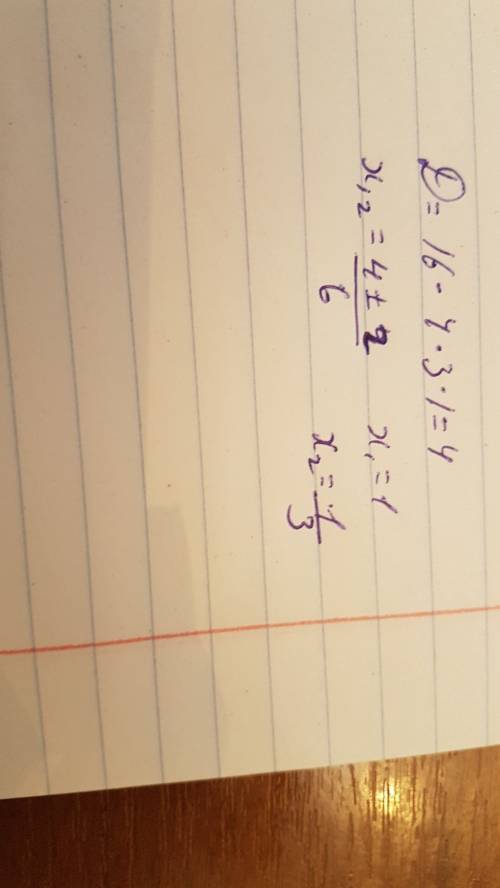 D = 16 - 4 · 3 · 1 = 4
x₁,₂ = (4 ± 2)/6 x₁ = 1
x₂ = 1/3